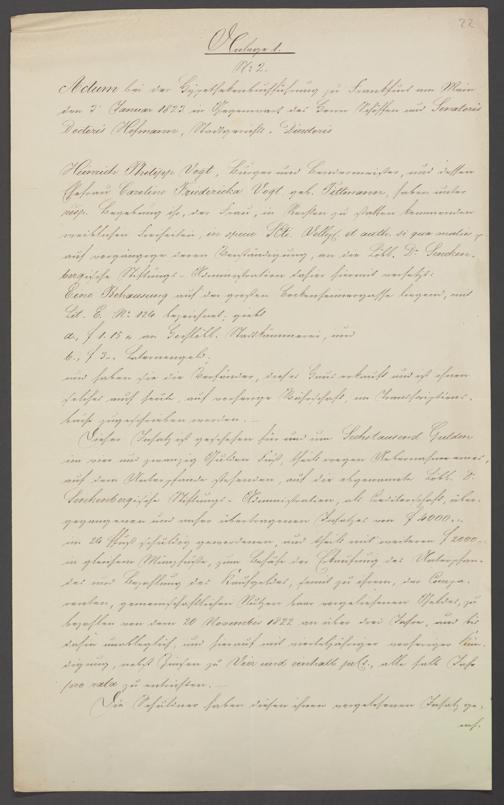 22
Anlage 1.
No: 2.
Actum bei der Hypothekenbuchführung zu Frankfurt am Main
den 3 Januar 1823 in Gegenwart des Herrn Schöffen und Senatoris
Doctoris Hofmann, Stadtgerichts-Directoris
Heinrich Philipp Vogt, Bürger und Bendermeister, und dessen
Ehefrau Caroline Friedericka Vogt geb. Tettmann, haben unter
resp. Begebung ihr, der Frau, in Rechten zu statten kommenden
weiblichen Freiheiten, in specie SCti. Vellej. et auth. si qua mulier
auf vorgängige deren Verständigung, an die Löbl. Dr. Sencken-
bergische Stiftungs-Administration dahier hiermit versetzt:
Eine Behausung auf der großen Bockenheimergasse liegend, mit
Lit. E. No 124 bezeichnet, giebt
a., f 1. 15 x an Hochlöbl. Stadtkämmerei, und
b., f 3.. Laternengeld;
und haben sie die Verpfänder, dieses Haus erkauft und ist ihnen
solches auch heute, auf vorherige Währschaft, im Transcriptions-
buche zugeschrieben worden. —
Dieser Insatz ist geschehen für und um Sechstausend Gulden
im vier und zwanzig Gulden Fuß, theils wegen Uebernahme eines,
auf dem Unterpfande stehenden, auf die obgenannte Löbl. Dr.
Senckenbergische Stiftungs-Administration, als Creditorschaft, über-
gegangenen und mithin übertragenen Insatzes von f 4000..
im 24 f Fuß schuldig gewordenen, und theils mit weiteren f 2000..
in gleichem Münzfuße, zum Behufe der Erkaufung des Unterpfan-
des und Bezahlung des Kaufgeldes, somit zu ihrem, der Compa-
renten, gemeinschaftlichen Nutzen baar vorgeliehenen Geldes, zu
bezahlen von dem 20 November 1822 an über drei Jahre, und bis
dahin unablöslich, und hierauf mit vierteljähriger vorheriger Kün-
digung, nebst Zinsen zu Vier und einhalb pCt., alle halb Jahr
pro rata zu entrichten. —
Die Schuldner haben diesen ihnen vorgelesenen Insatz ge-